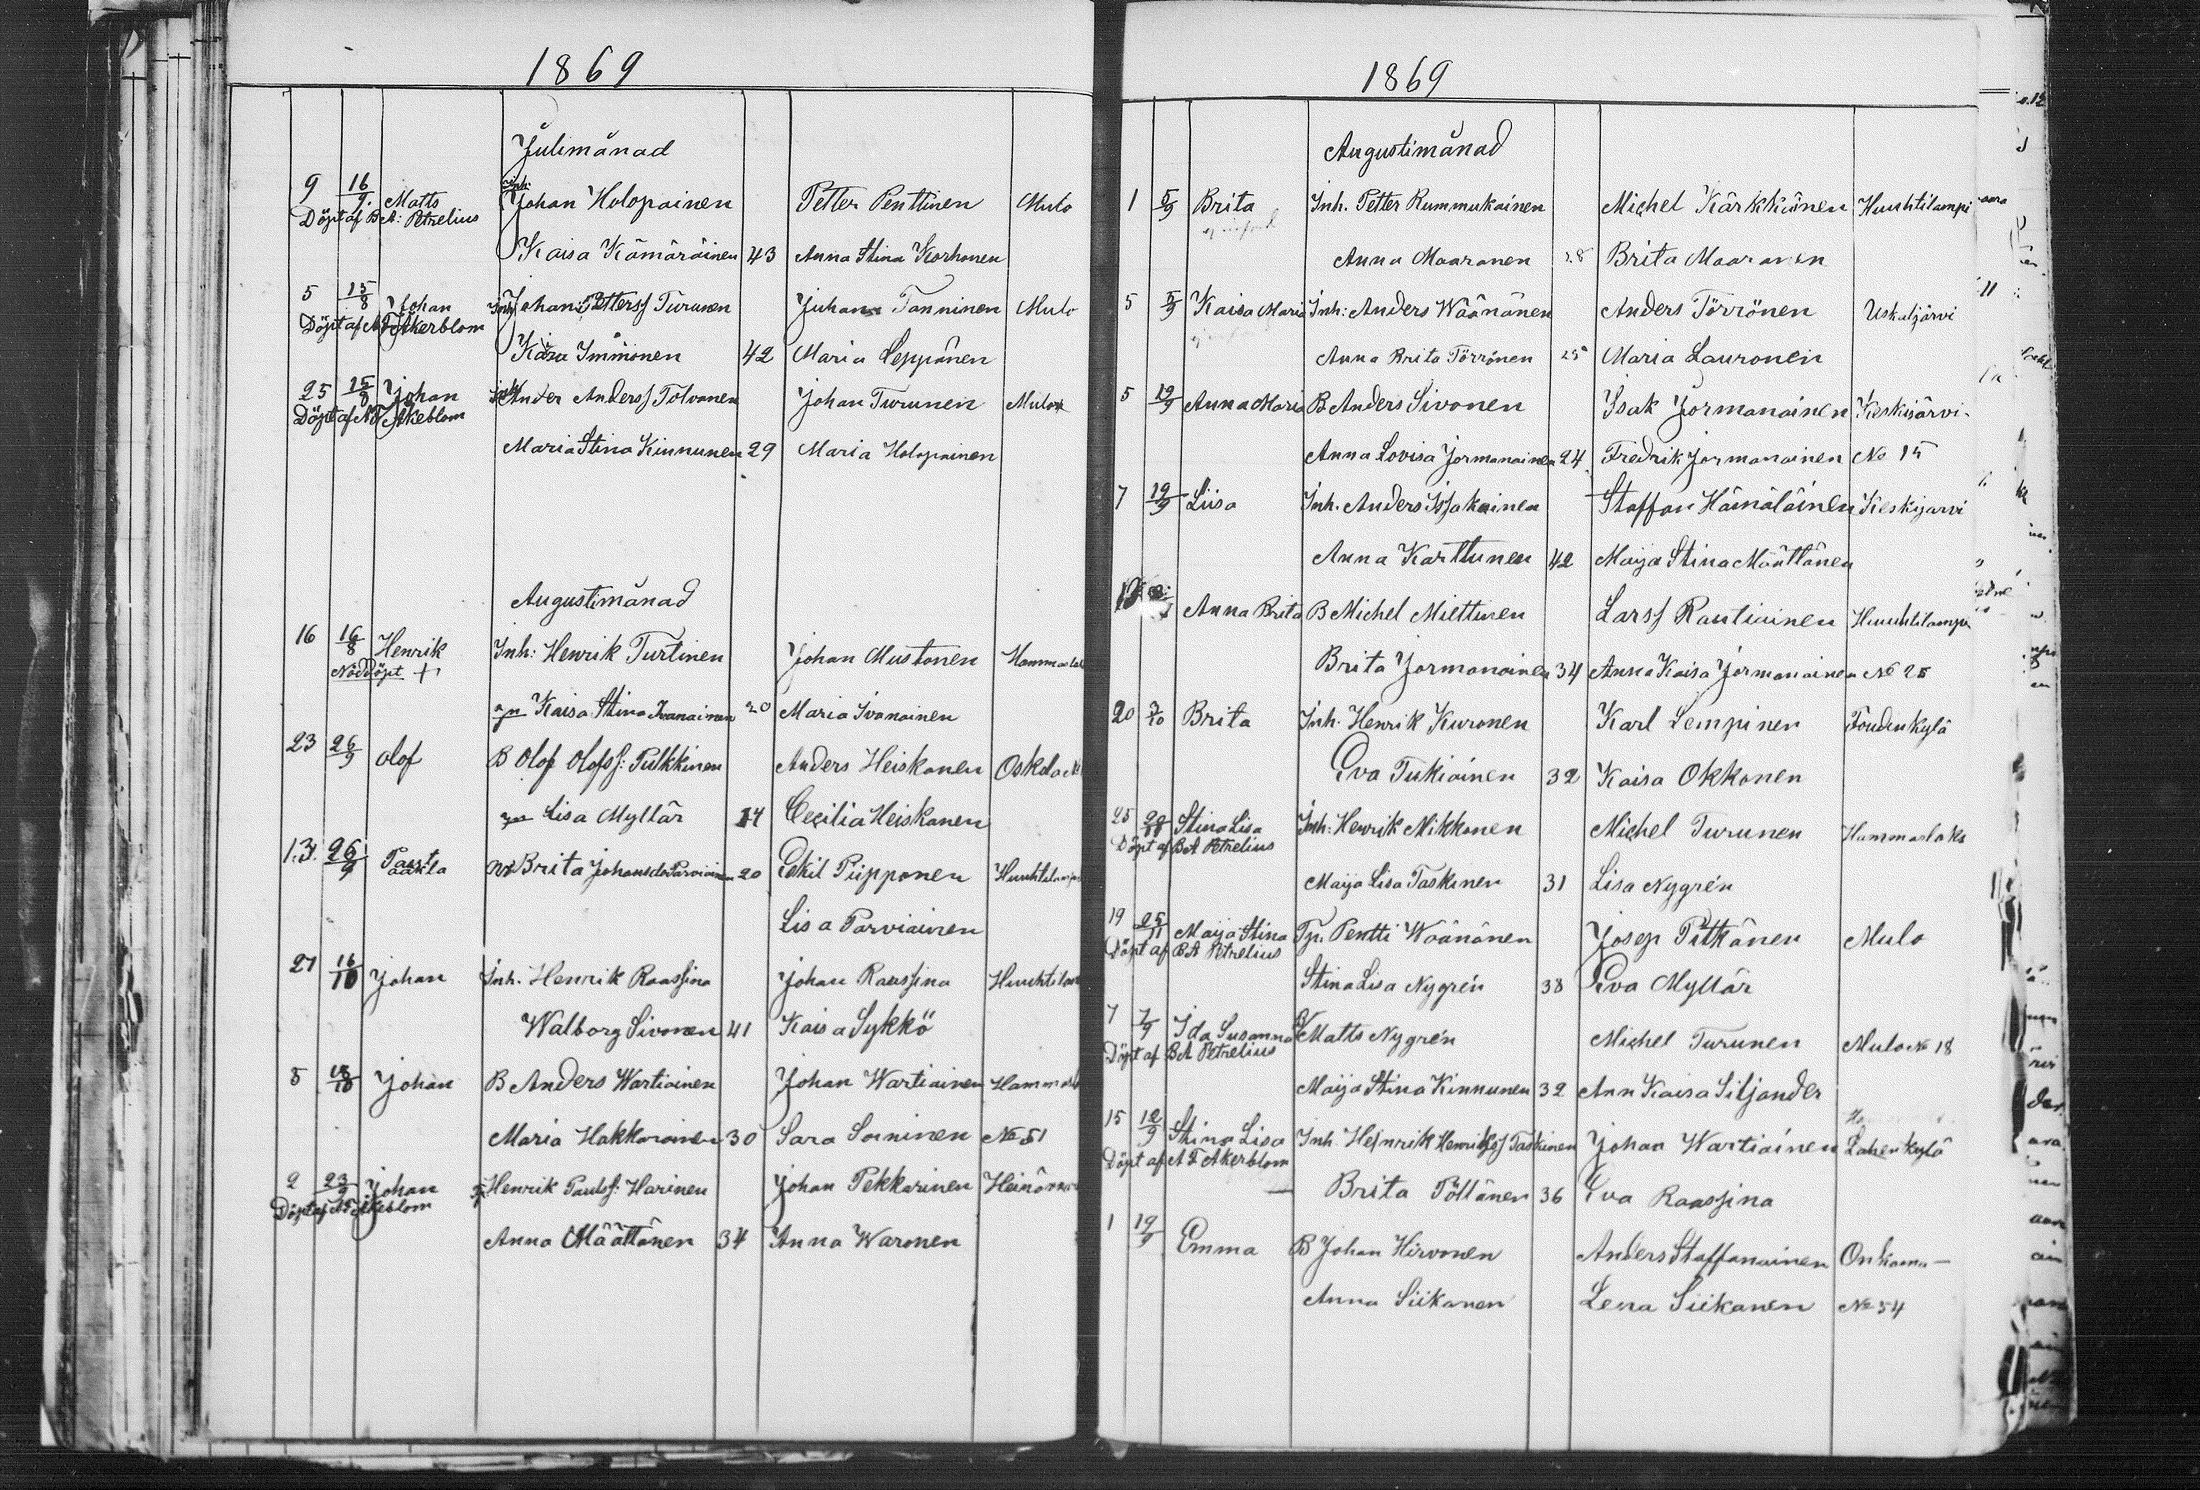 1869
Julimånad
9 16/9. Matts Inh: Johan Holopainen Petter Penttinen Mulo
Döpt af BA: Petrelius
Kaisa Kämäräinen 43 Anna Stina Korhonen
5 15/8 Johan Inh Johan Petterss Turunen Juhana Tanninen Mulo
Döpt af A F Åkerblom
Kaisa Immonen 42 Maria Leppänen
25 15/8 Johan Inh Ander Anderss Tolvanen Johan Turunen Mulo
Döpt af A F Åkeblom
Maria Stina Kinnunen 29 Maria Holopainen
Augustimånad
16 16/8 Henrik Inh: Henrik Turtinen Johan Mustonen Hammasla
Nöddöpt +
Kaisa Stina Ivanainen 20 Maria Ivanainen
23 26/9 Olof B Olof Olofss: Pulkkinen Anders Heiskanen Oskola
Lisa Myllär 24 Cecilia Heiskanen
13. 26/9 Paakla Brita Johansdr Parviainen 20 Eskil Piipponen Huuhtilampi
Lisa Parviainen
27 16/10 Johan Inh. Henrik Raassina Johan Raassina Huuhtila
Walborg Sivonen 41 Kaisa Sykkö
8 18/10 Johan B Anders Wartiainen Johan Wartiainen Hamma
Maria Hakkarainen 30 Sara Soininen No 51
2 23/9 Johan Henrik Paulss: Harinen Johan Pekkarinen Heinä
Döpt af A F Åkeblom
Anna Määttänen 34 Anna Waronen
1869
Augustimånad
1 5/9 Brita Inh. Petter Rummukainen Michel Kärkkäinen Huuhtilampi
Anna Maaranen 28 Brita Maaranen
5 5/9 Kaisa Maria Inh: Anders Wäänänen Anders Törrönen Uskaljärvi
Anna Brita Törrönen 25 Maria Lauronen
5 19/9 Anna Maria B Anders Sivonen Isak Jormanainen Keskijärvi
Anna Lovisa Jormanainen 24. Fredrik Jormanainen No 15
7 19/9 Liisa Inh. Anders Issakainen Staffan Hämäläinen Keskijärvi
Anna Karttunen 42 Maija Stina Määttänen
Anna Brita B Michel Miettinen Larss Rautiainen Huuhtilampi
Brita Jormanainen 34 Anna Kaisa Jormanainen No 25
20 3/10 Brita Inh. Henrik Kuronen Karl Lempinen Foudinkylä
Eva Tukiainen 32 Kaisa Okkonen
25 28/11 Stina Lisa Inh: Henrik Nikkonen Michel Turunen Hammaslaks
Döpt af BA Petrelius
Maija Lisa Taskinen 31 Lisa Nygrén
19 25/11 Maija Stina Tp. Pentti Wäänänen Josep Pitkänen Mulo
Döpt af BA Petrelius
Stina Lisa Nygrén 38 Eva Myllär
7 7/9 Ida Susanna B Matts Nygrén Michel Turunen Mulo No 18
Döpt af BA Petrelius
Maija Stina Kinnunen 32 Ann Kaisa Siljander
15 12/9 Stina Lisa Inh Heinrik Henrikss Taskinen Johan Wartiainen Lahenkylä
Döpt af A F Åkerblom
Brita Pöllänen 36 Eva Raassina
1 19/9 Emma B Johan Hirvonen Anders Staffanainen Onkama
Anna Siikanen Lena Siikanen No 54